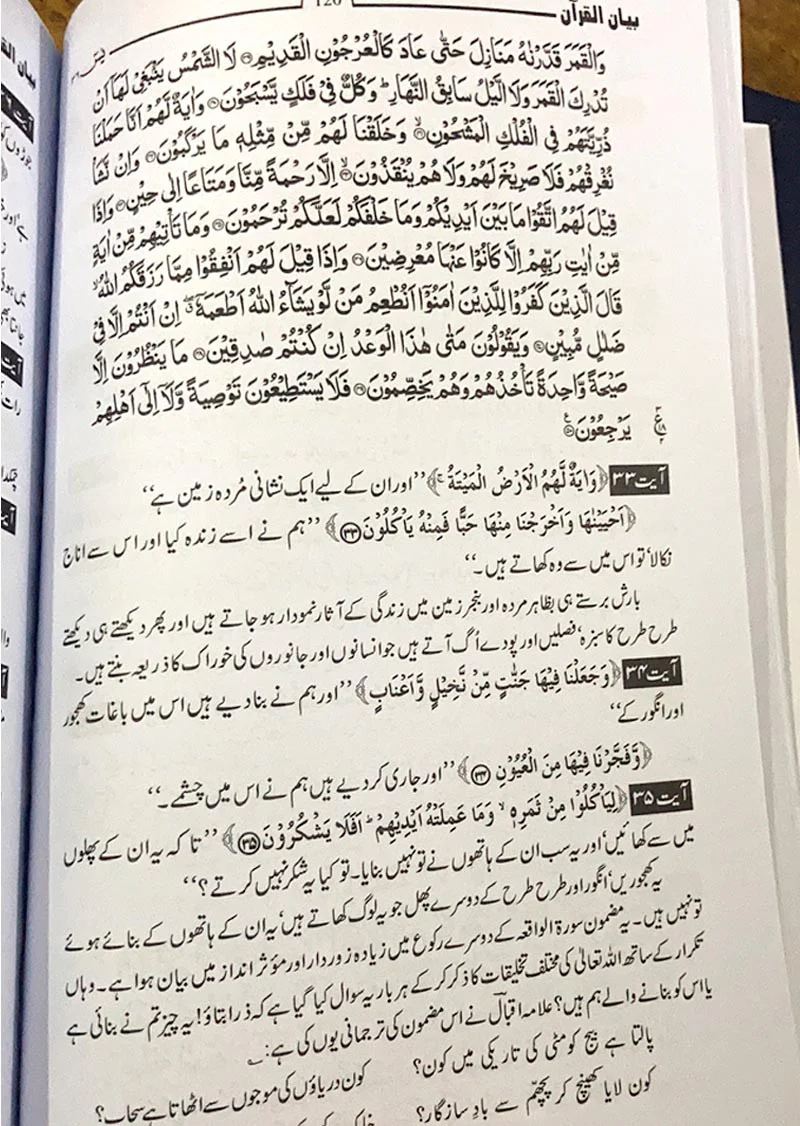 بیان القرآن
120
یٰسٓ ۳۶
وَالْقَمَرَ قَدَّرْنٰهُ مَنَازِلَ حَتّٰى عَادَ كَالْعُرْجُوْنِ الْقَدِيْمِ۝ لَا الشَّمْسُ يَنْۢبَغِيْ لَهَاۤ اَنْ
تُدْرِكَ الْقَمَرَ وَلَا الَّيْلُ سَابِقُ النَّهَارِ ؕ وَكُلٌّ فِيْ فَلَكٍ يَّسْبَحُوْنَ۝ وَاٰيَةٌ لَّهُمْ اَنَّا حَمَلْنَا
ذُرِّيَّتَهُمْ فِي الْفُلْكِ الْمَشْحُوْنِ۝ وَخَلَقْنَا لَهُمْ مِّنْ مِّثْلِهٖ مَا يَرْكَبُوْنَ۝ وَاِنْ نَّشَاْ
نُغْرِقْهُمْ فَلَا صَرِيْخَ لَهُمْ وَلَا هُمْ يُنْقَذُوْنَ۝ اِلَّا رَحْمَةً مِّنَّا وَمَتَاعًا اِلٰى حِيْنٍ۝ وَاِذَا
قِيْلَ لَهُمُ اتَّقُوْا مَا بَيْنَ اَيْدِيْكُمْ وَمَا خَلْفَكُمْ لَعَلَّكُمْ تُرْحَمُوْنَ۝ وَمَا تَاْتِيْهِمْ مِّنْ اٰيَةٍ
مِّنْ اٰيٰتِ رَبِّهِمْ اِلَّا كَانُوْا عَنْهَا مُعْرِضِيْنَ۝ وَاِذَا قِيْلَ لَهُمْ اَنْفِقُوْا مِمَّا رَزَقَكُمُ اللّٰهُ ۙ
قَالَ الَّذِيْنَ كَفَرُوْا لِلَّذِيْنَ اٰمَنُوْۤا اَنُطْعِمُ مَنْ لَّوْ يَشَآءُ اللّٰهُ اَطْعَمَهٗۤ ۖ اِنْ اَنْتُمْ اِلَّا فِيْ
ضَلٰلٍ مُّبِيْنٍ۝ وَيَقُوْلُوْنَ مَتٰى هٰذَا الْوَعْدُ اِنْ كُنْتُمْ صٰدِقِيْنَ۝ مَا يَنْظُرُوْنَ اِلَّا
صَيْحَةً وَّاحِدَةً تَاْخُذُهُمْ وَهُمْ يَخِصِّمُوْنَ۝ فَلَا يَسْتَطِيْعُوْنَ تَوْصِيَةً وَّلَاۤ اِلٰۤى اَهْلِهِمْ
يَرْجِعُوْنَ۝
آیت ۳۳ ﴿وَاٰيَةٌ لَّهُمُ الْاَرْضُ الْمَيْتَةُ ۚ﴾ ’’اور ان کے لیے ایک نشانی مُردہ زمین ہے‘‘
﴿اَحْيَيْنٰهَا وَاَخْرَجْنَا مِنْهَا حَبًّا فَمِنْهُ يَاْكُلُوْنَ ۝۳۳﴾ ’’ہم نے اسے زندہ کیا اور اس سے اناج
نکالا‘ تو اس میں سے وہ کھاتے ہیں۔‘‘
بارش برستے ہی بظاہر مردہ اور بنجر زمین میں زندگی کے آثار نمودار ہو جاتے ہیں اور پھر دیکھتے ہی دیکھتے
طرح طرح کا سبزہ‘ فصلیں اور پودے اُگ آتے ہیں جو انسانوں اور جانوروں کی خوراک کا ذریعہ بنتے ہیں۔
آیت ۳۴ ﴿وَجَعَلْنَا فِيْهَا جَنّٰتٍ مِّنْ نَّخِيْلٍ وَّاَعْنَابٍ﴾ ’’اور ہم نے بنا دیے ہیں اس میں باغات کھجور
اور انگور کے‘‘
﴿وَّفَجَّرْنَا فِيْهَا مِنَ الْعُيُوْنِ ۝۳۴﴾ ’’اور جاری کر دیے ہیں ہم نے اس میں چشمے۔‘‘
آیت ۳۵ ﴿لِيَاْكُلُوْا مِنْ ثَمَرِهٖ ۙ وَمَا عَمِلَتْهُ اَيْدِيْهِمْ ؕ اَفَلَا يَشْكُرُوْنَ ۝۳۵﴾ ’’تاکہ یہ ان کے پھلوں
میں سے کھائیں‘ اور یہ سب ان کے ہاتھوں نے تو نہیں بنایا۔ تو کیا یہ شکر نہیں کرتے؟‘‘
یہ کھجوریں‘ انگور اور طرح طرح کے دوسرے پھل جو یہ لوگ کھاتے ہیں‘ یہ ان کے ہاتھوں کے بنائے ہوئے
تو نہیں ہیں۔ یہ مضمون سورۃ الواقعہ کے دوسرے رکوع میں زیادہ زور دار اور مؤثر انداز میں بیان ہوا ہے۔ وہاں
تکرار کے ساتھ اللہ تعالیٰ کی مختلف تخلیقات کا ذکر کر کے ہر بار یہ سوال کیا گیا ہے کہ ذرا بتاؤ! یہ چیز تم نے بنائی ہے
یا اس کو بنانے والے ہم ہیں؟ علامہ اقبالؔ نے اس مضمون کی ترجمانی یوں کی ہے: ؎
پالتا ہے بیج کو مٹی کی تاریکی میں کون؟
کون دریاؤں کی موجوں سے اٹھاتا ہے سحاب؟
کون لایا کھینچ کر پچھّم سے بادِ سازگار؟